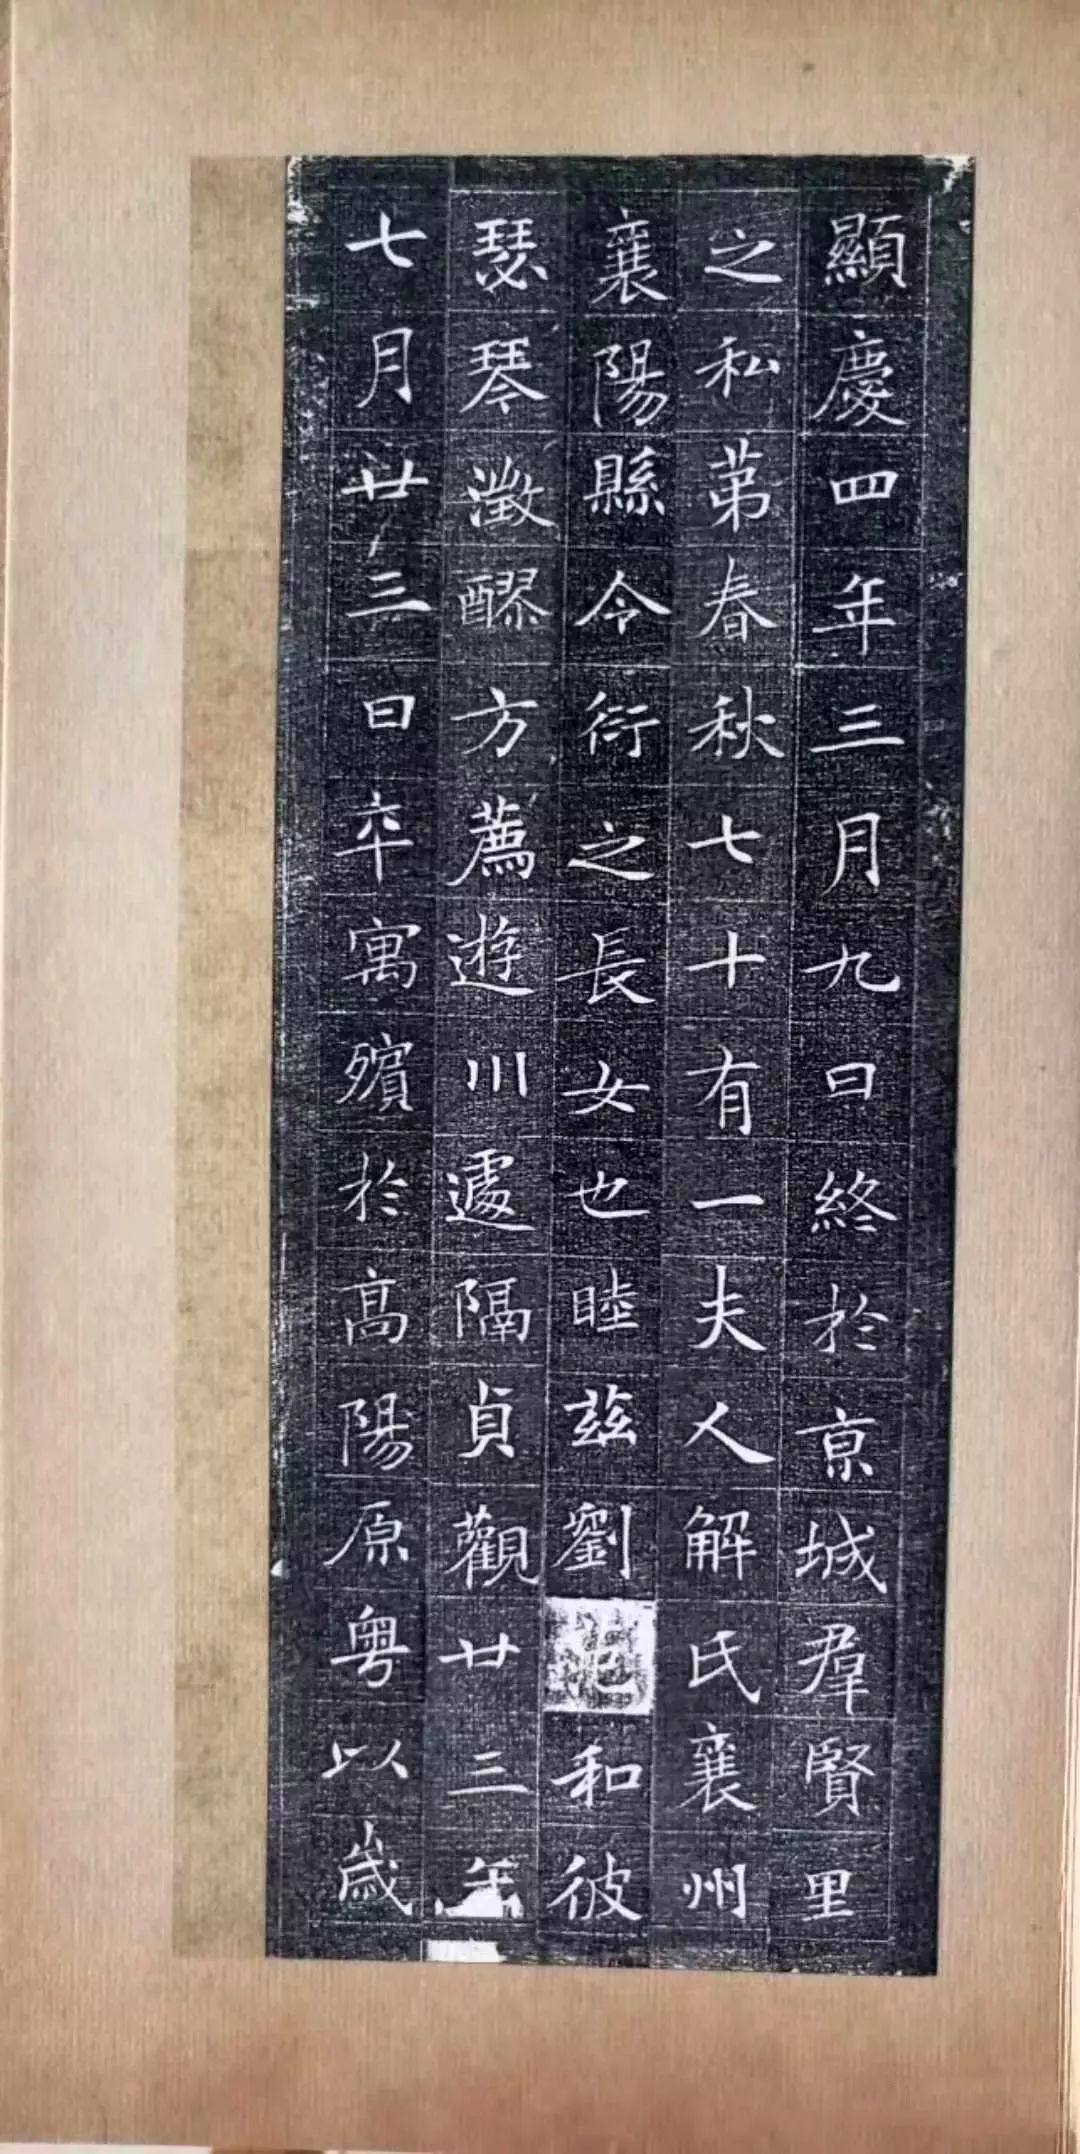 顯慶四年三月九日終於京城群賢里
之私第春秋七十有一夫人解氏襄州
襄陽縣令衍之長女也睦茲劉范和彼
瑟琴澂醪方薦遊川遽隔貞觀廿三年
七月廿三日卒寓殯於高陽原粵以歲